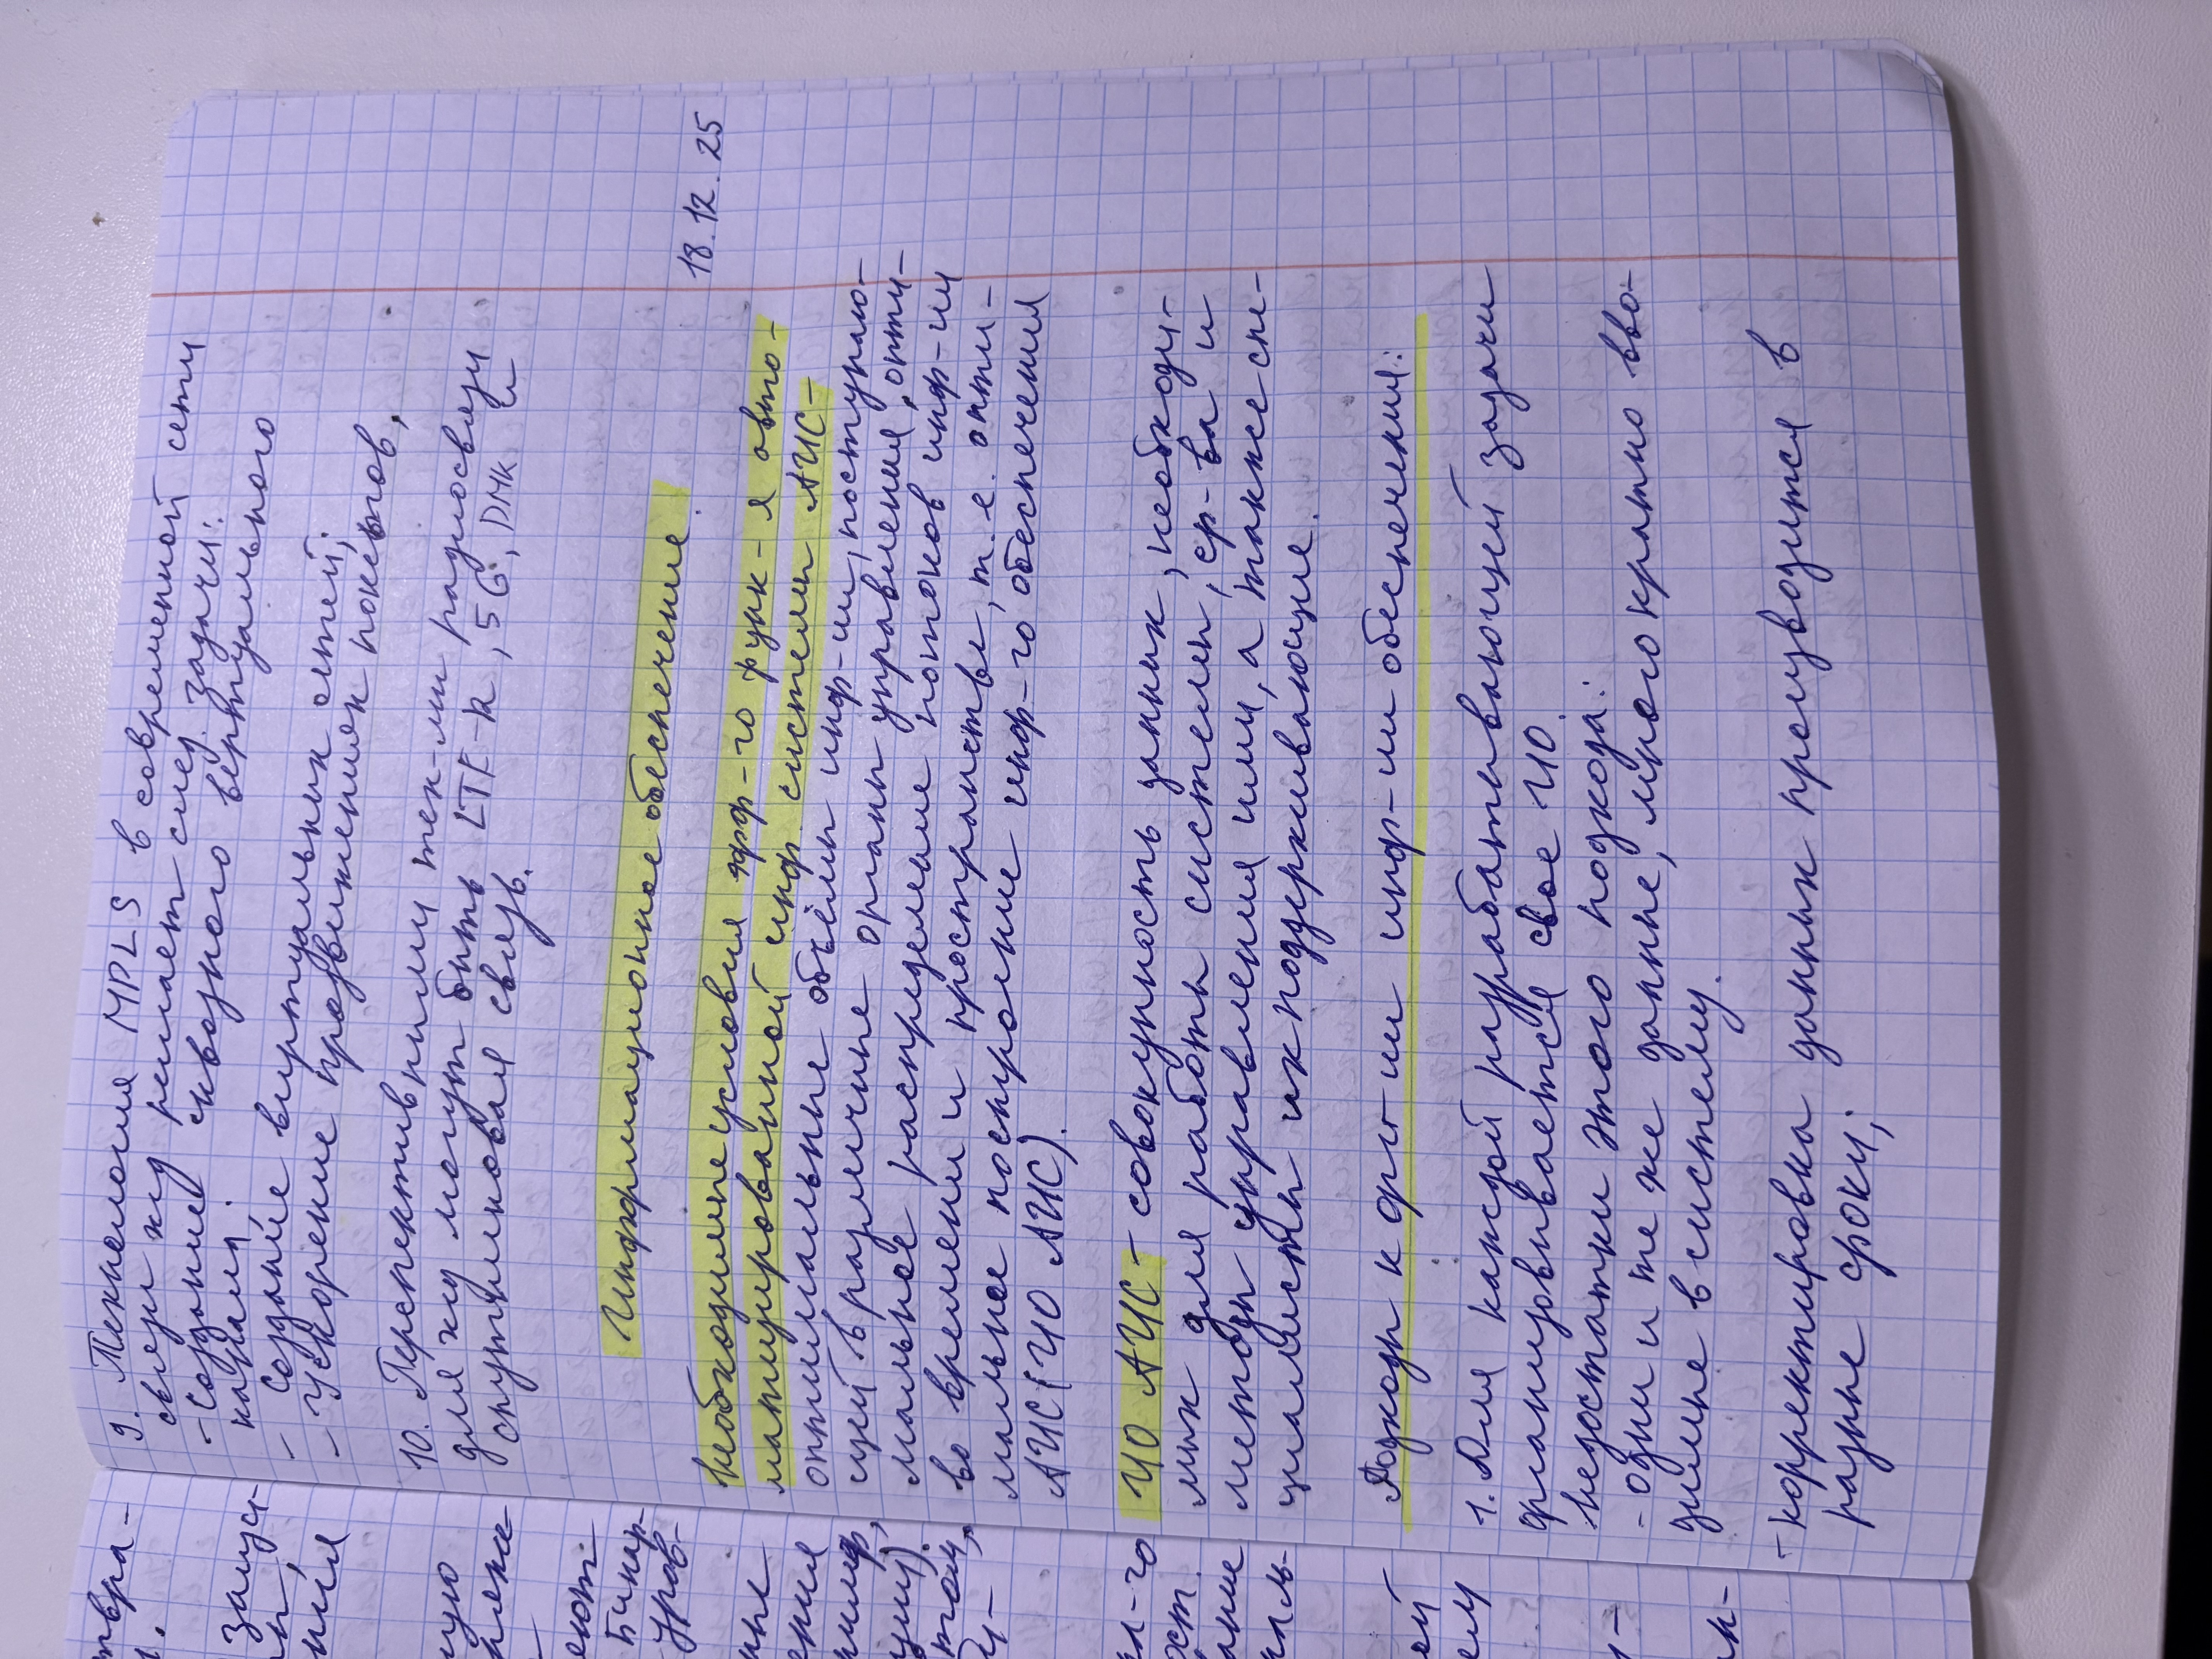 9. Технология MPLS в современной сети
связи жд решает след. задачи:
- создание сквозного виртуального
канала;
- создание виртуальных сетей;
- ускорение продвижения пакетов.
10. Перспективными тех-ми радиосвязи
для жд могут быть LTE-R, 5G, DMR и
спутниковая связь.
18.12.25
Информационное обеспечение.
Необходимые условия эфф-го функ-я авто-
матизированной инф. системы АИС-
оптимальные объёмы инф-ии, поступаю-
щей в различные органы управления, опти-
мальное распределение потоков инф-ии
во времени и пространстве, т.е. опти-
мальное построение инф-го обеспечения
АИС (ИО АИС).
ИО АИС - совокупность данных, необходи-
мых для работы системы, ср-ва и
методы управления ими, а также спе-
циалисты их поддерживающие.
Подходы к орг-ии инф-ии обеспечения:
1. Для каждой разрабатывающей задачи
организовывается свое ИО.
Недостатки этого подхода:
- одни и те же данные, многократно вво-
димые в систему.
- корректировка данных производится в
разные сроки;